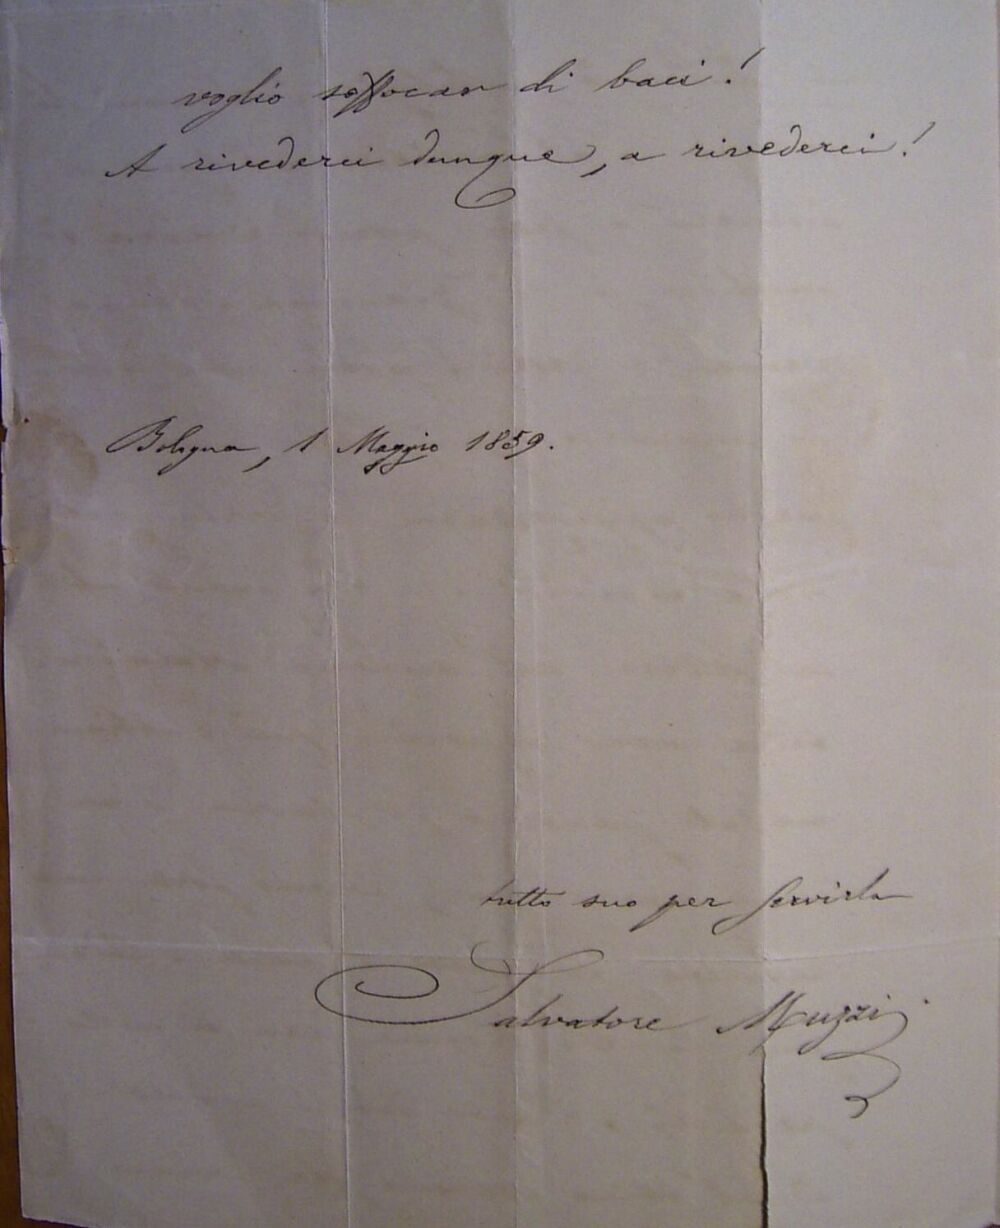 voglio soffocar di baci!
A rivederci dunque, a rivederci!
Bologna, 1 Maggio 1859.
tutto suo per servirla
Salvatore Muzzi